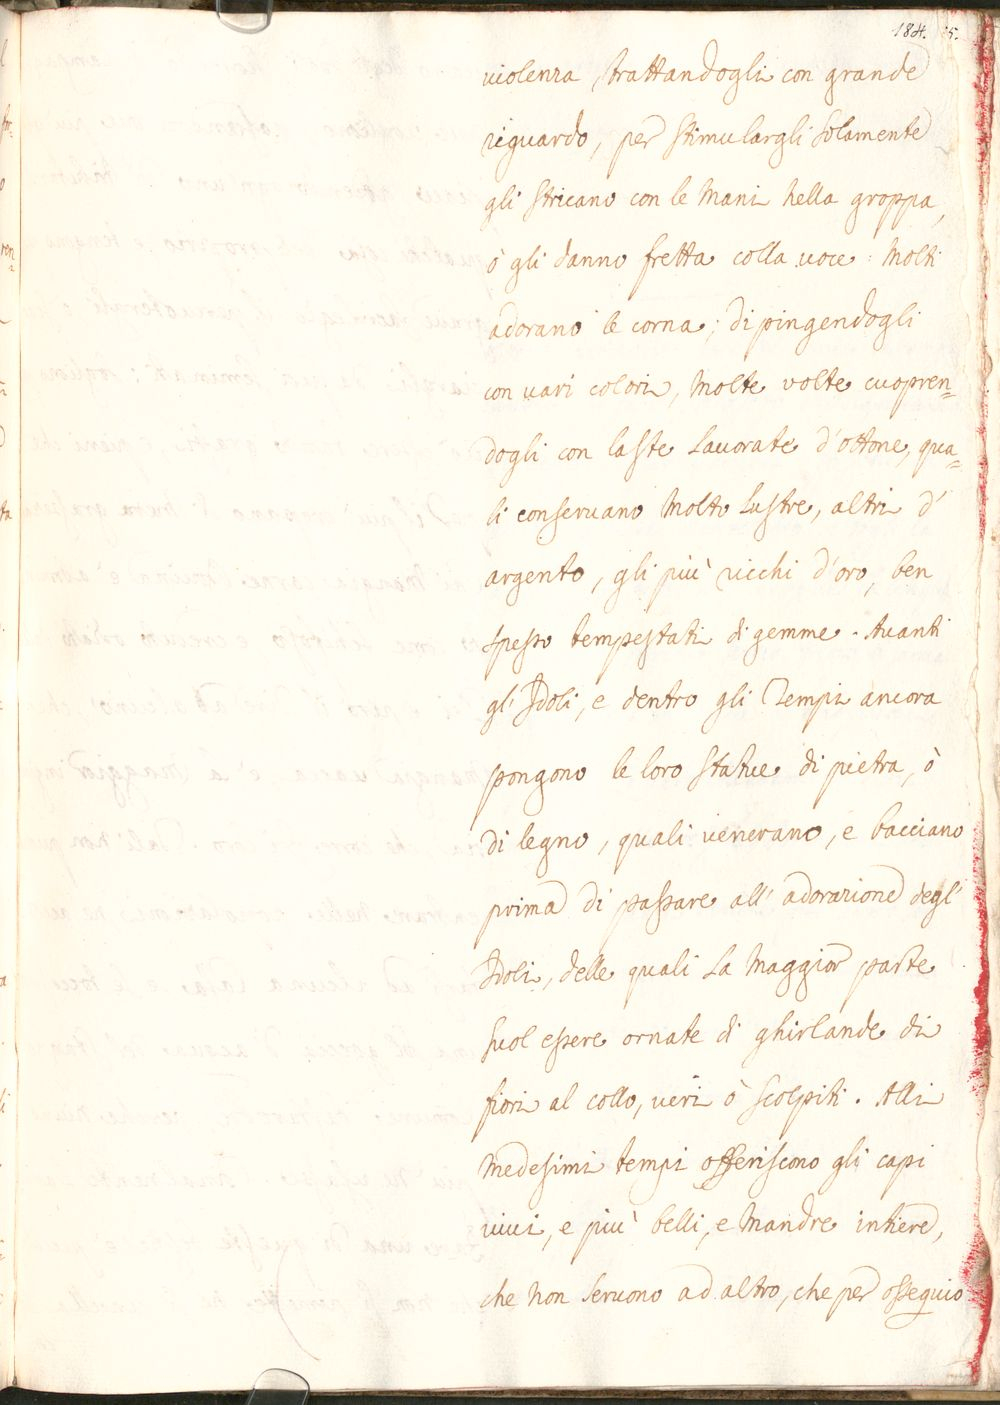 184. 5.
violenza, trattandogli con grande
riguardo, per stimulargli solamente
gli stricano con le Mani nella groppa,
ò gli danno fretta colla voce: Molti
adorano le corna; dipingendogli
con vari colori, Molte volte cuopren=
dogli con laste lauorate d'ottone, qua=
li conseruano Molto lustre, altri d'
argento, gli più ricchi d'oro, ben
spesso tempestati di gemme. Auanti
gl' Idoli, e dentro gli Tempi ancora
pongono le loro statue di pietra, ò
di legno, quali venerano, e bacciano
prima di passare all' adorazione degl'
Idoli, delle quali la Maggior parte
suol essere ornate di ghirlande di
fiori al collo, veri ò scolpiti. Alli
Medesimi tempi offeriscono gli capi
viui, e più belli, e Mandre intiere,
che non seruono ad altro, che per ossequio